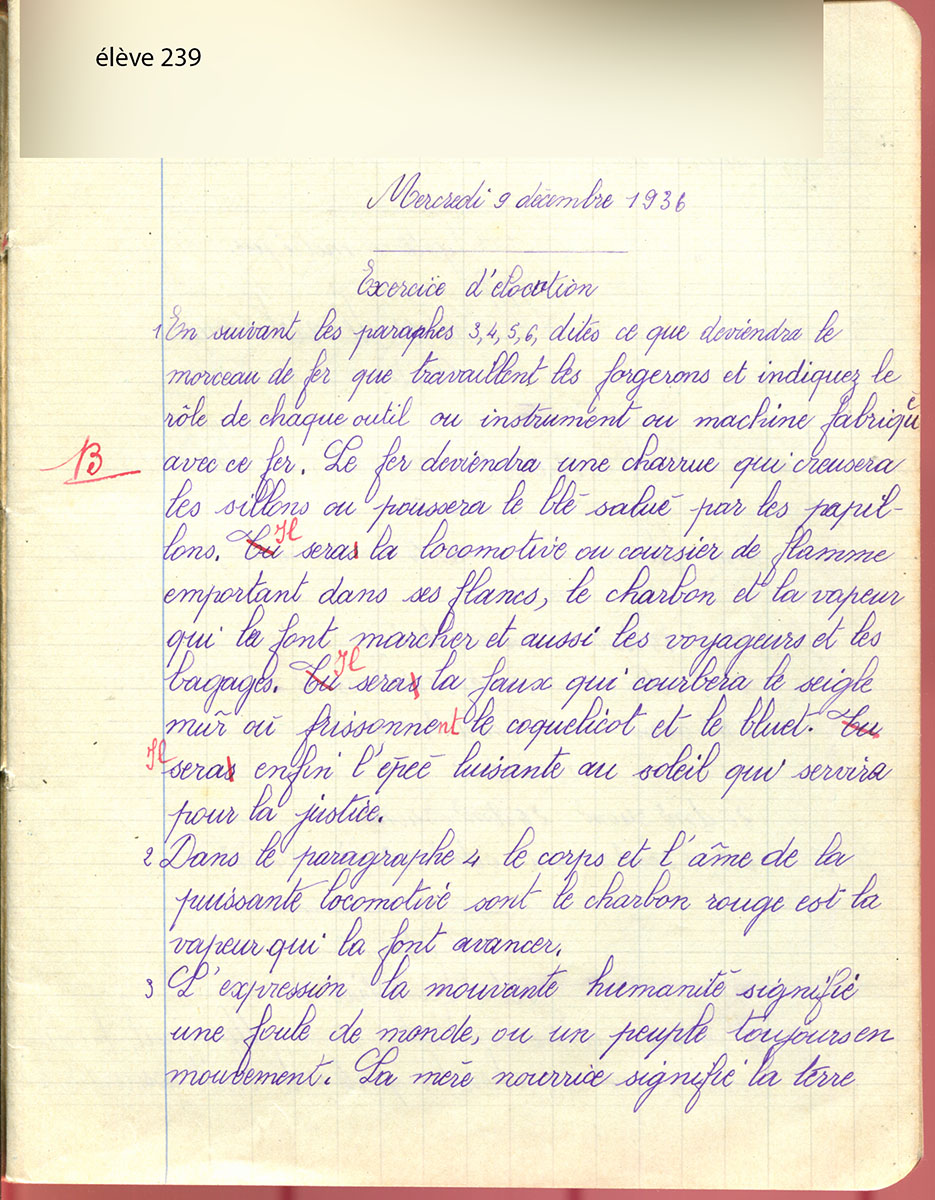 élève 239
Mercredi 9 décembre 1936
Exercice d'élocution
1 En suivant les paraphes 3, 4, 5, 6, dites ce que deviendra le
morceau de fer que travaillent les forgerons et indiquez le
rôle de chaque outil ou instrument ou machine fabriqué
B avec ce fer. Le fer deviendra une charrue qui creusera
les sillons ou poussera le blé salué par les papil-
lons. Tu Il seras la locomotive ou coursier de flamme
emportant dans ses flancs, le charbon et la vapeur
qui la font marcher et aussi les voyageurs et les
bagages. Tu Il seras la faux qui courbera le seigle
mûr où frissonnent le coquelicot et le bluet. Tu
Il seras enfin l'épée luisante au soleil qui servira
pour la justice.
2 Dans le paragraphe 4 le corps et l'âme de la
puissante locomotive sont le charbon rouge est la
vapeur qui la font avancer.
3 L'expression la mouvante humanité signifie
une foule de monde, ou un peuple toujours en
mouvement. La mère nourrice signifie la terre